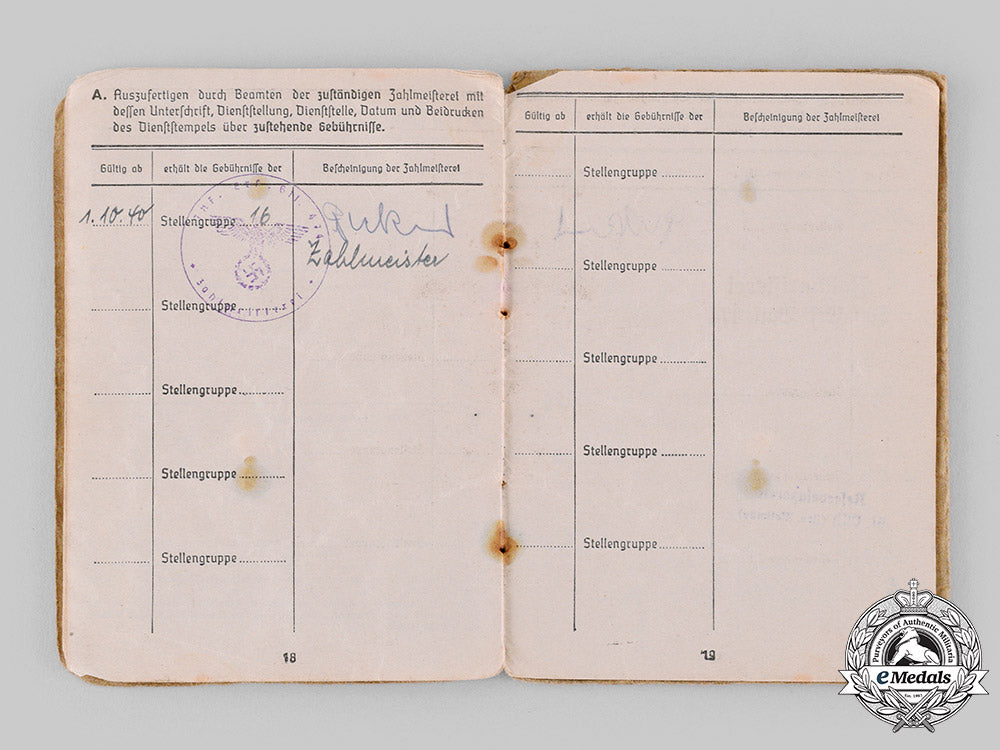 A. Auszufertigen durch Beamten der zuständigen Zahlmeisterei mit
dessen Unterschrift, Dienststellung, Dienststelle, Datum und Beidrucken
des Dienststempels über zustehende Gebührnisse.
Gültig ab erhält die Gebührnisse der Bescheinigung der Zahlmeisterei
1.10.40 Stellengruppe 16
Zahlmeister
Stellengruppe
Stellengruppe
Stellengruppe
Stellengruppe
18
Gültig ab erhält die Gebührnisse der Bescheinigung der Zahlmeisterei
Stellengruppe
Stellengruppe
Stellengruppe
Stellengruppe
Stellengruppe
19
Purveyors of Authentic Militaria
eMedals